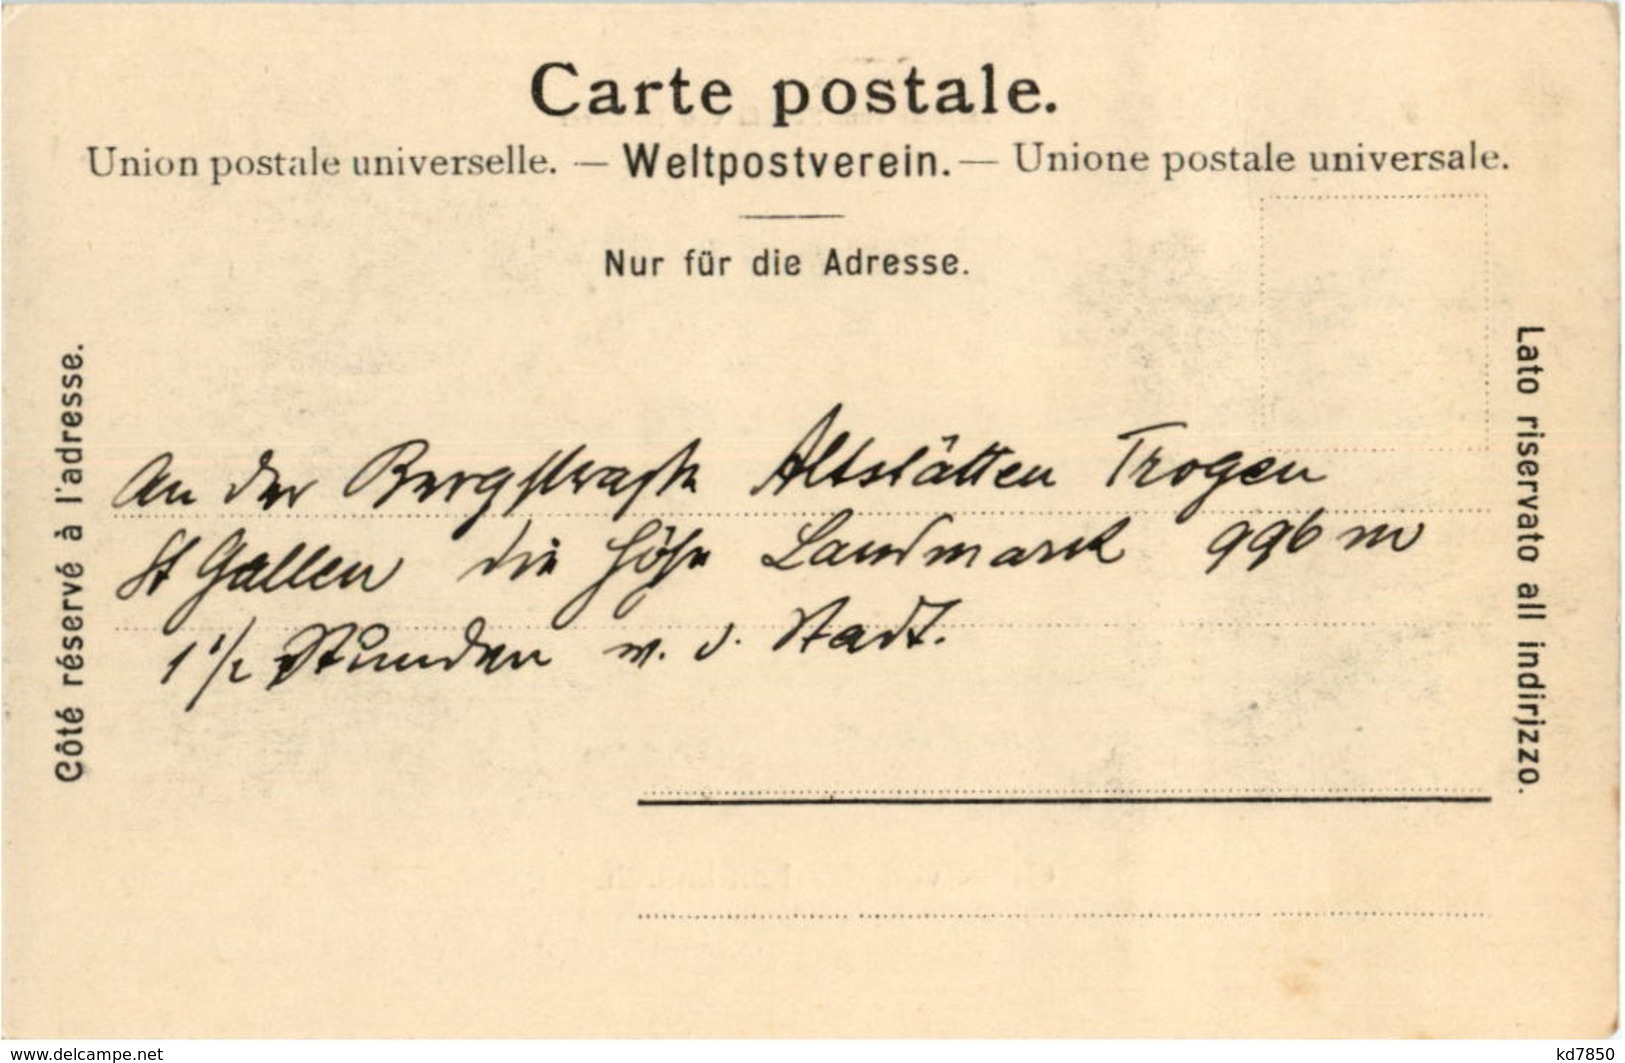 Carte postale.
Union postale universelle. — Weltpostverein. — Unione postale universale.
Nur für die Adresse.
Côté réservé à l'adresse.
Lato riservato all indirjzzo.
An der Bergstraße Altstätten Trogen
St Gallen die Höhe Landmark 996 m
1 1/2 Stunden v. d. Stadt.
www.delcampe.net
kd7850